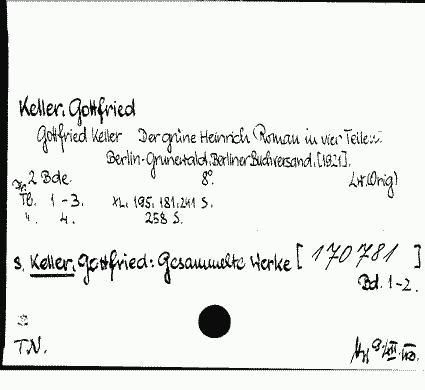 Keller, Gottfried
Gottfried Keller Der grüne Heinrich Roman in vier Teilen.
Berlin-Grunewald, Berliner Buchversand. [1921].
2 Bde. 8°. Lw. (Orig)
TB. 1-3. XL, 195, 181, 241 S.
". 4. 258 S.
s. Keller, Gottfried: Gesammelte Werke [170781]
Bd. 1-2.
T.N.